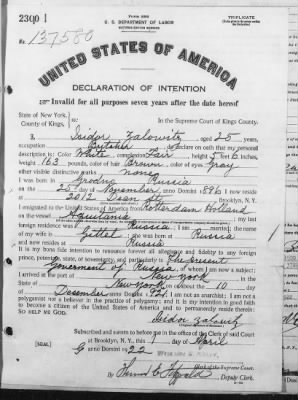 2300 1
Form 2203
U. S. DEPARTMENT OF LABOR
NATURALIZATION SERVICE
TRIPLICATE
No. 137580
UNITED STATES OF AMERICA
DECLARATION OF INTENTION
Invalid for all purposes seven years after the date hereof
State of New York,
County of Kings, ss:
In the Supreme Court of Kings County.
I, Isidor Zalowitz, aged 25 years,
occupation Butcher, do declare on oath that my personal
description is: Color White, complexion Fair, height 5 feet 6 inches,
weight 163 pounds, color of hair Brown, color of eyes Gray
other visible distinctive marks none
I was born in Grodno Russia
on the 25 day of November, anno Domini 1896; I now reside
at 2012 Dean St., Brooklyn, N. Y.
I emigrated to the United States of America from Rotterdam Holland
on the vessel; my last
foreign residence was Russia; I am married; the name
of my wife is; she was born at Russia
and now resides at Russia
It is my bona fide intention to renounce forever all allegiance and fidelity to any foreign
prince, potentate, state, or sovereignty, and particularly to The present
Government of Russia, of whom I am now a subject;
I arrived at the port of New York, in the
State of New York, on or about the 10 day
of December, anno Domini 1921; I am not an anarchist; I am not a
polygamist nor a believer in the practice of polygamy; and it is my intention in good faith
to become a citizen of the United States of America and to permanently reside therein:
SO HELP ME GOD.
Isidor Zalowitz
Subscribed and sworn to before me in the office of the Clerk of said Court
at Brooklyn, N. Y., this 1 day of April
anno Domini 1922
[SEAL]
Clerk of the Supreme Court.
By, Deputy Clerk.